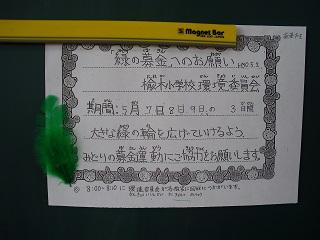 Magnet Bar
「緑の募金」へのお願い
H20.5.2
小学校 環境委員会
期間:5月 7日 8日 9日の 3日間
大きな緑の輪を広げていけるよう
みどりの募金運動にご協力をお願いします。
◎ 8:00~8:10に 環境委員会が各教室に回収にうかがいます。